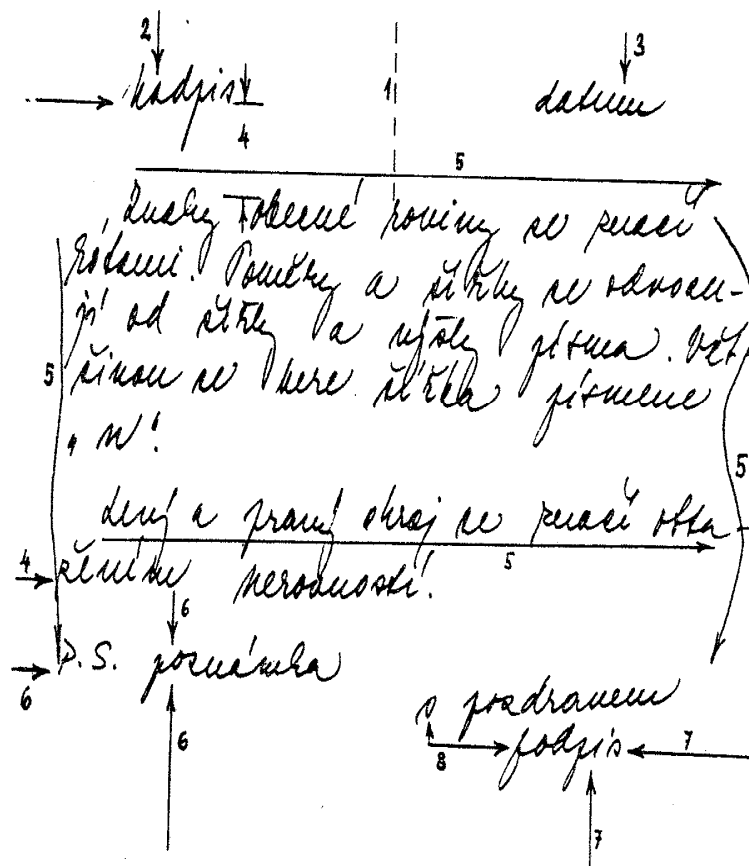 2 3
nadpis 1 datum
4
5
Znaky obecné roviny se značí
kótami. Poměry a šířky se odvozu-
jí od šířky a výšky písma. Vět-
5 šinou se bere šířka písmene
„n“.
5
Levý a pravý okraj se značí obta-
5
4 žením nerovností.
6
P.S. poznámka
6
s pozdravem
6 podpis 7
8
7